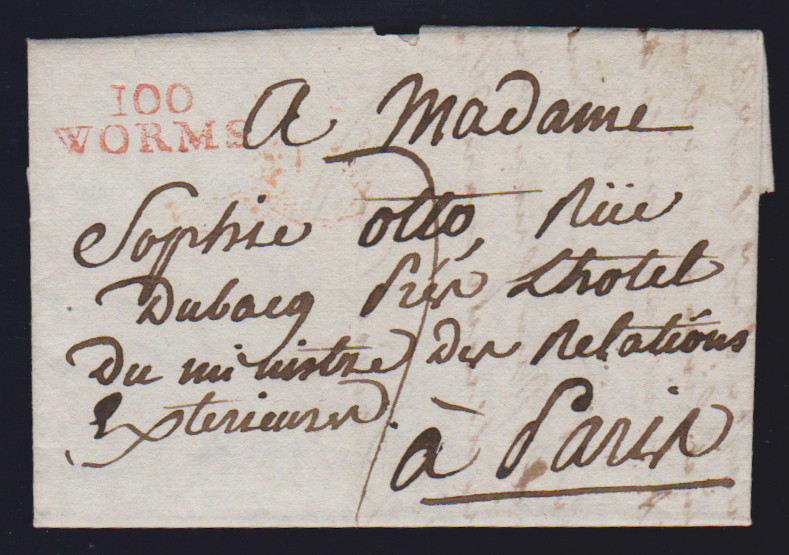 100
WORMS
A Madame
Sophie Otto, Rüe
Dubacq Prés Lhotel
Du ministre Des Relations
Exterieures.
à Paris